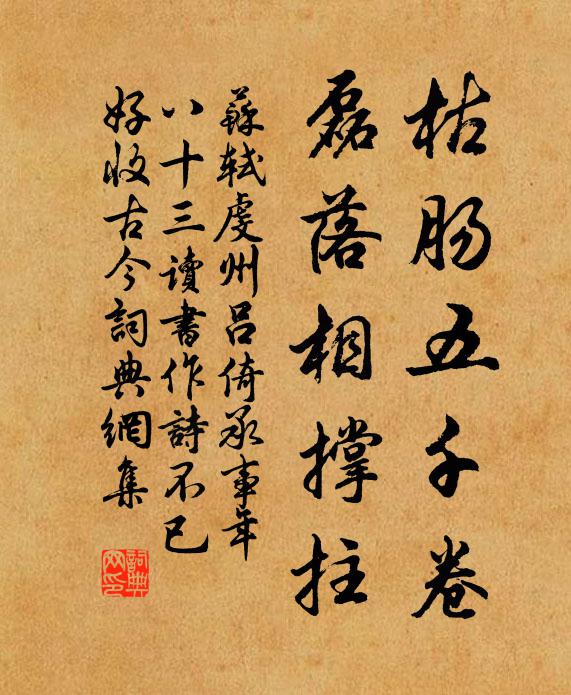 枯肠五千卷
磊落相撑拄
蘇軾虔州呂倚承事年
八十三讀書作詩不已
好收古今詞典網集
詞典网印